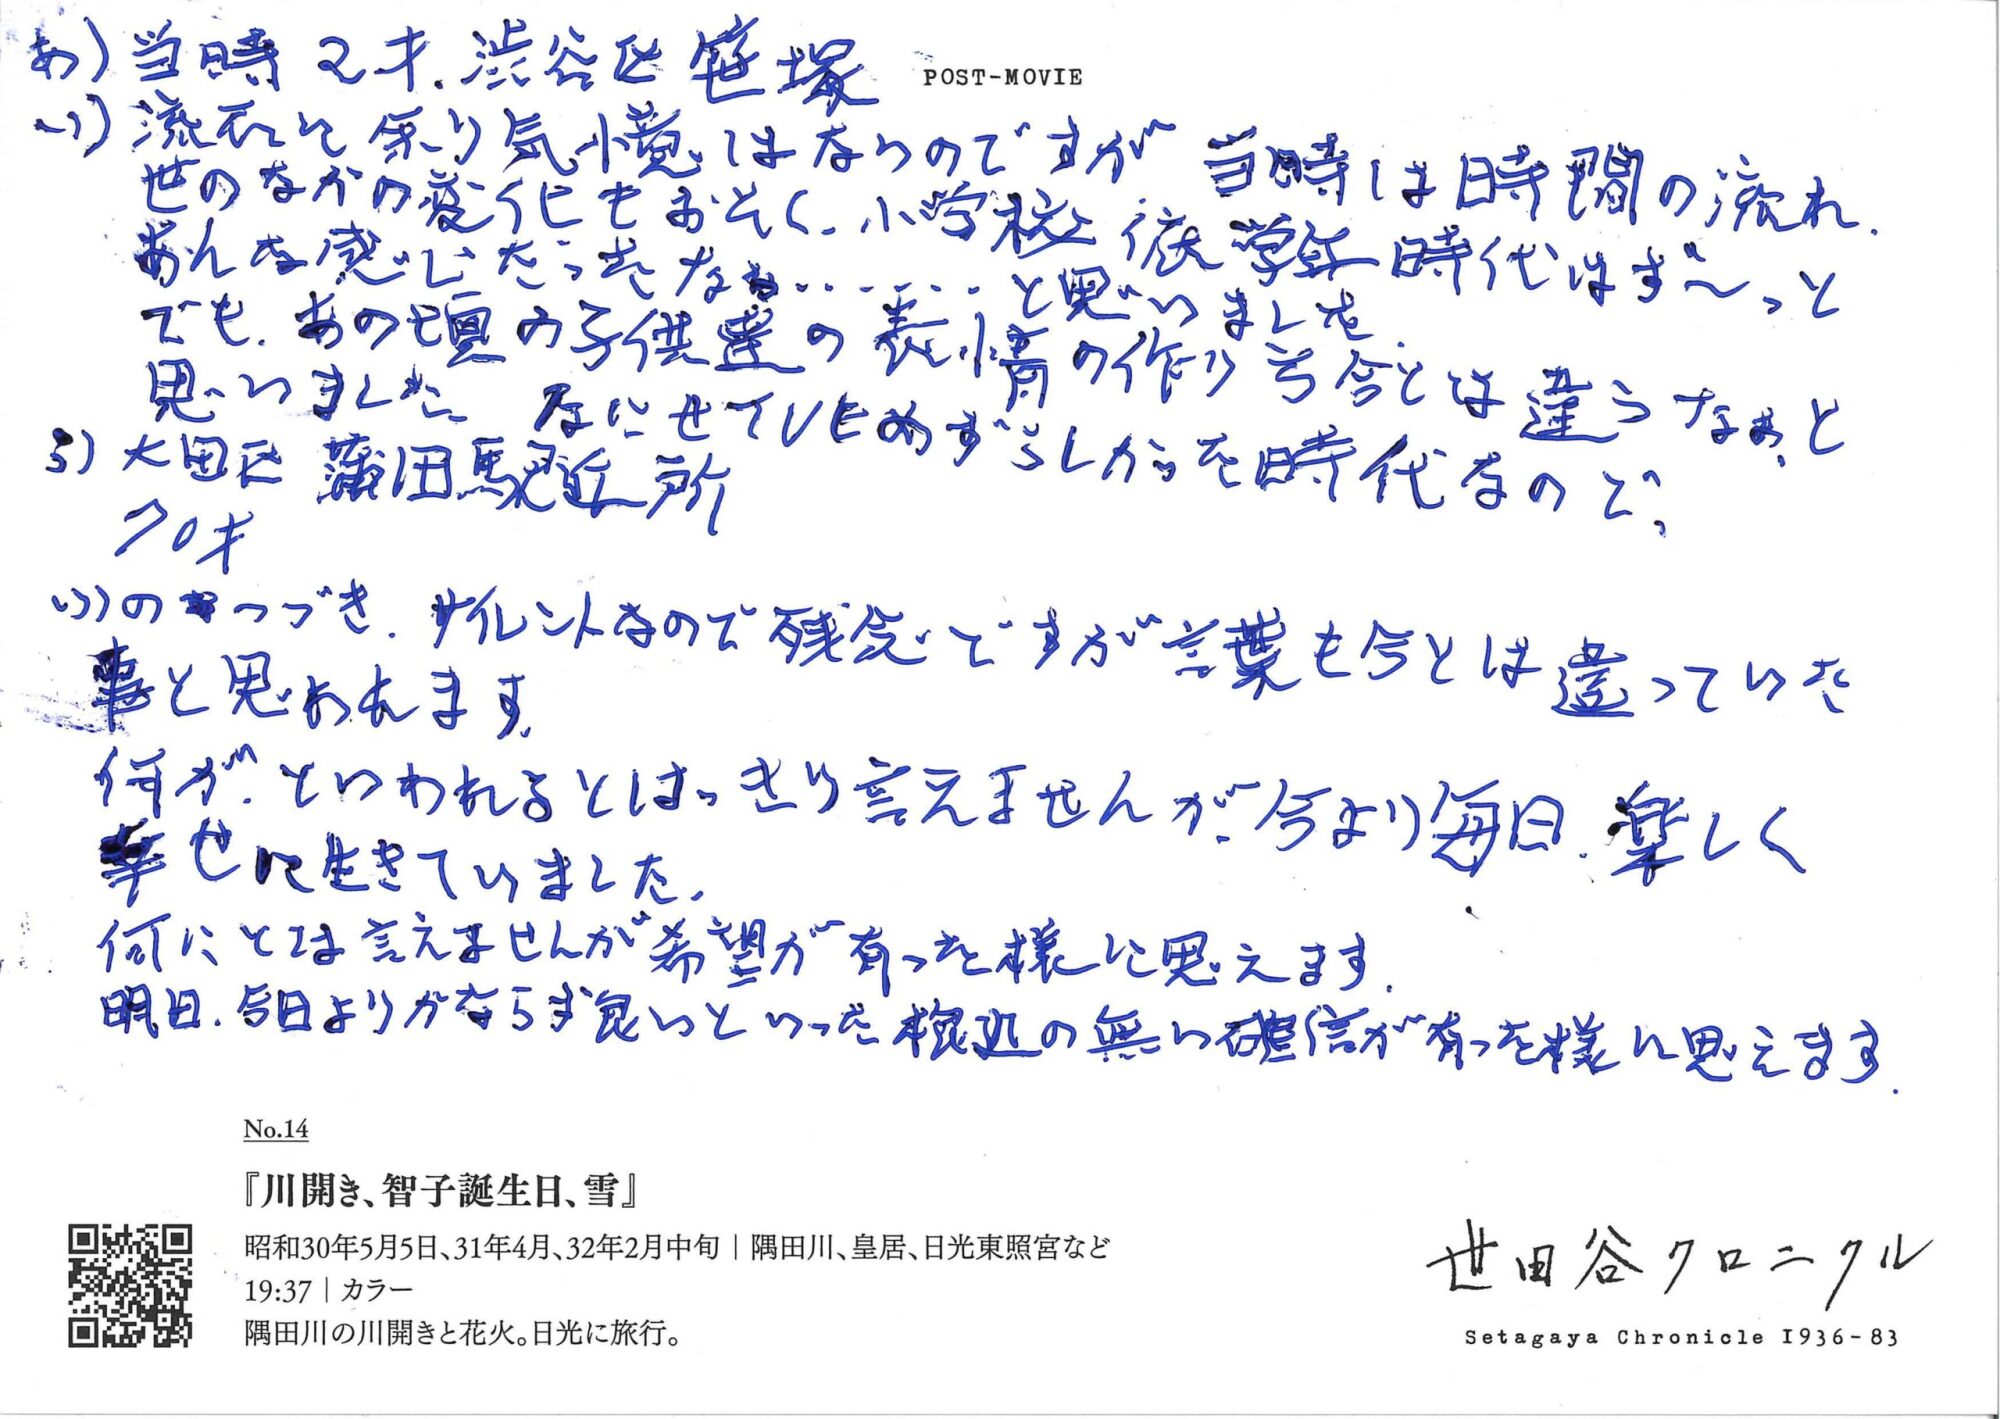 あ) 当時 2才.渋谷区 笹塚
POST-MOVIE
い) 流石に余り気憶はないのですが 当時は時間の流れ.
世のなかの変化もおそく、小学校 低学年時代はず〜っと
あんな感じだったなぁ......と思いました.
でも.あの頃の子供達の表情の作り方今とは違うなぁ、と
思いました、なにせTVもめずらしかった時代なので、
う) 大田区 蒲田駅近所
70才
い)のつづき.サイレントなので残念ですが言葉も今とは違っていた
事と思われます.
何が、といわれるとはっきり言えませんが、今より毎日.楽しく
幸せに生きていました.
何にとは言えませんが希望が有った様に思えます.
明日.今日よりかならず良いといった根拠の無い確信が有った様に思えます.
No.14
『川開き、智子誕生日、雪』
昭和30年5月5日、31年4月、32年2月中旬｜隅田川、皇居、日光東照宮など
19:37｜カラー
隅田川の川開きと花火。日光に旅行。
世田谷クロニクル
Setagaya Chronicle 1936-83